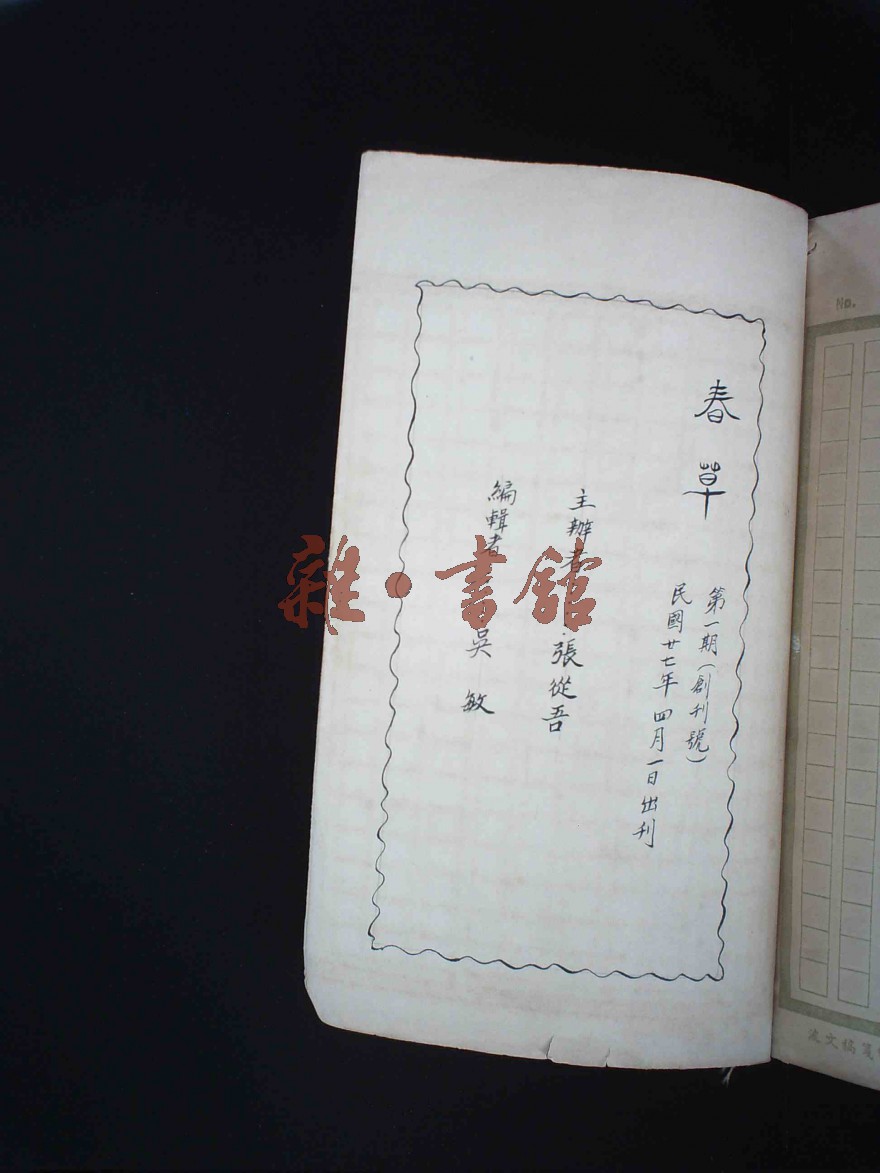 春草
第一期(創刊號)
民國廿七年四月一日出刊
主辦者:張從吾
編輯者 吳敏
雜·書館
No.
文稿箋